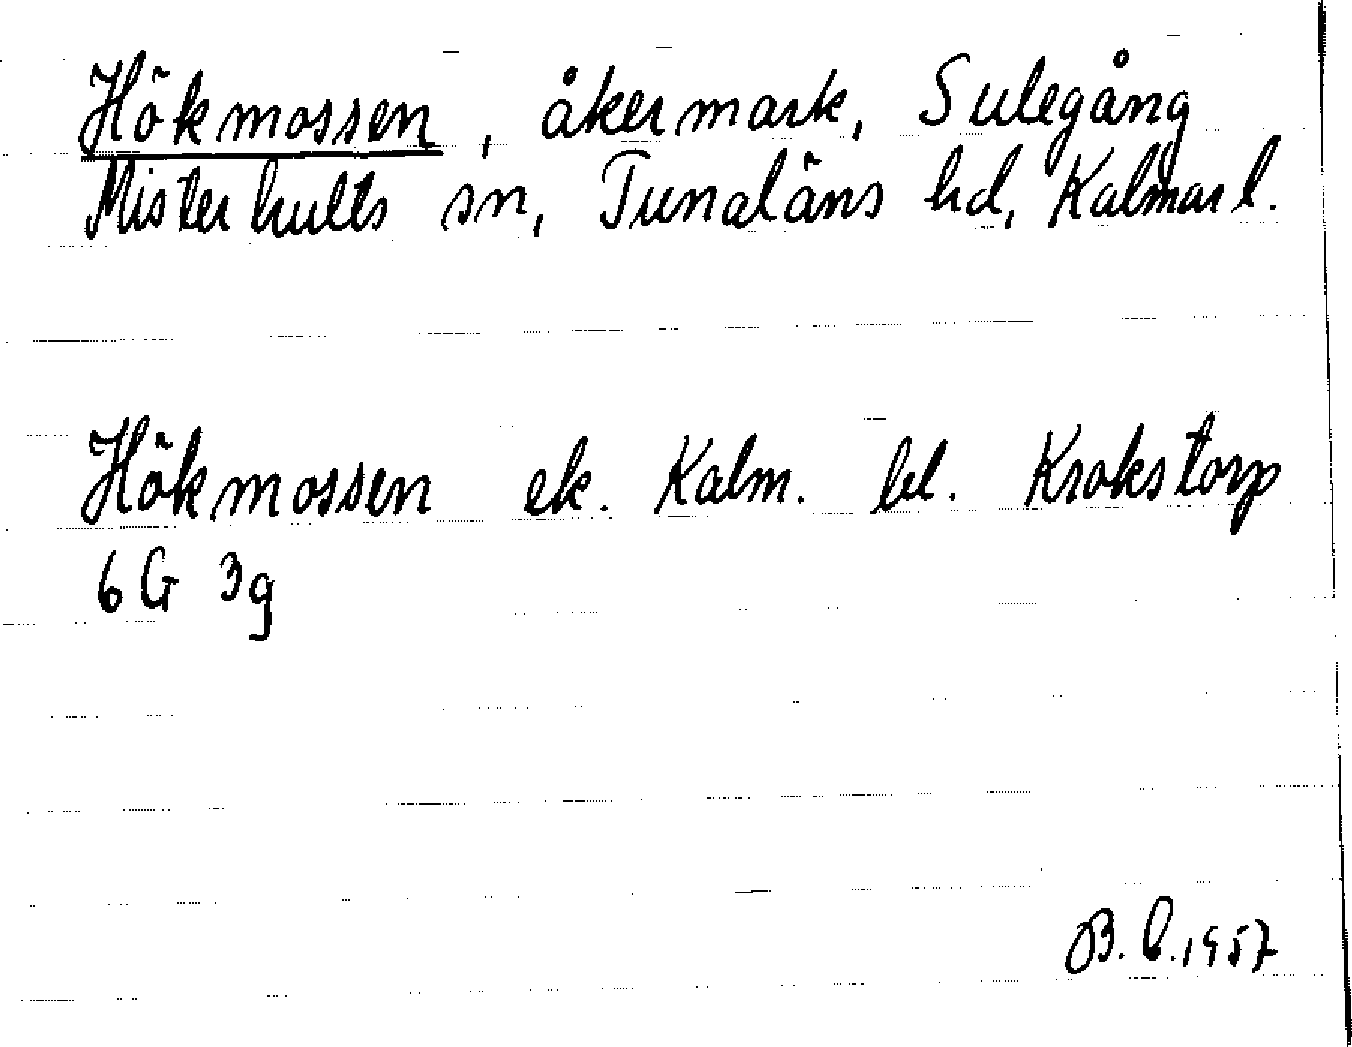 Hökmossen, åkermark, Sulegång
Misterhults sn, Tunaläns hd, Kalmar l.
Hökmossen ek. Kalm. bl. Krokstorp
6G 3g
B. C. 1957